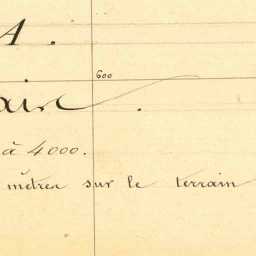 A.
600
air.
à 4000.
mètres sur le terrain